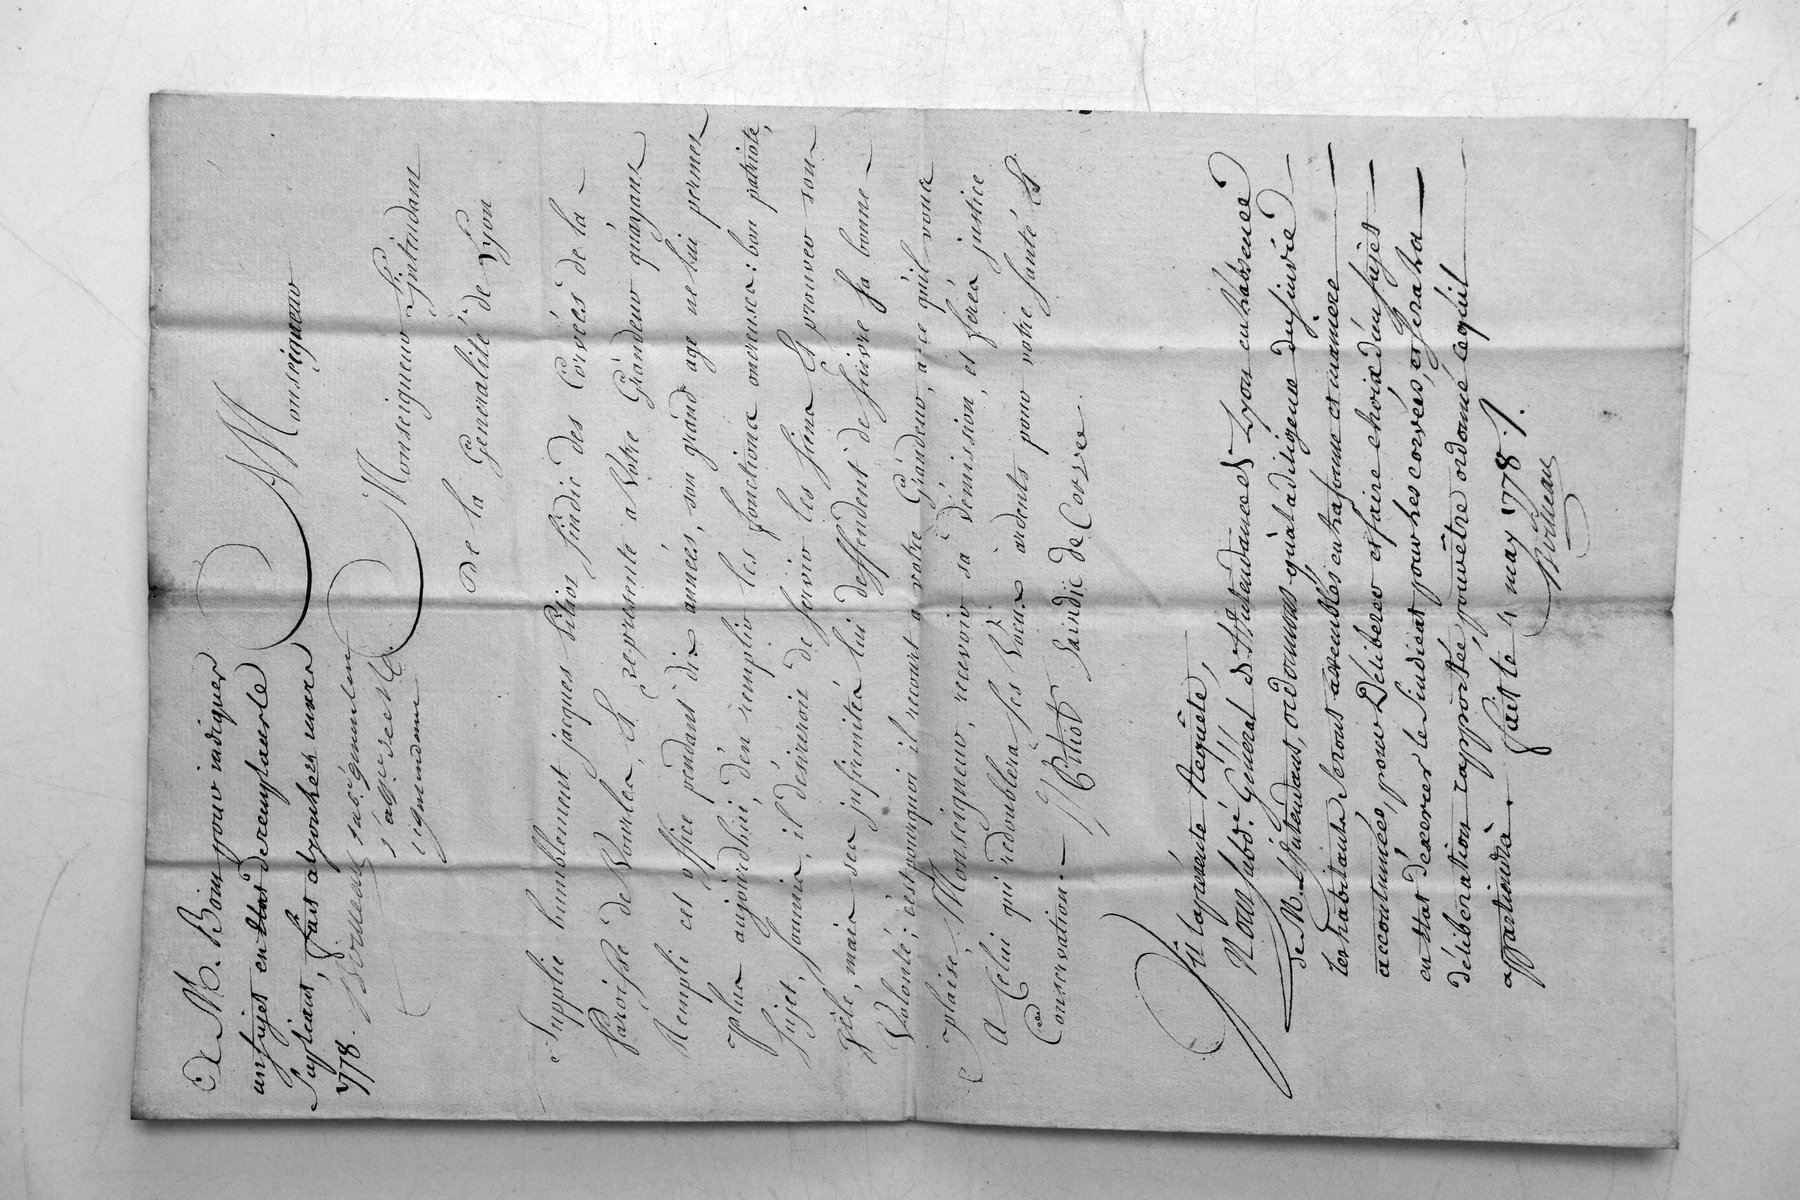 Monseigneur
A M. Boin pour indiquer
un sujet en état de remplacer le
Supliant, fait a Lyon le 22 mars
1778.
Monseigneur L'intendant
De la Generalité de Lyon
Supplie humblement jacques Pitiot sindic des Corvées de la
Paroisse de Et represente a Votre Grandeur qu'ayant
Rempli cet office pendant dix années, son grand age ne lui permet
plus aujourdhui, d'en remplir les fonctions onereuses: bon patriote,
Sujet soumis, il désireroit de servir les siens Et prouver son
Zèle, mais ses infirmités lui deffendent de suivre sa bonne
Volonté; c'est pourquoi il recourt a votre Grandeur, a ce qu'il vous
plaise, Monseigneur, recevoir sa démission, et ferés justice
A Celui qui redoublera ses Vœux ardents pour votre santé Et
Conservation.
Pitiot Saindic de Corvee
Vû la présente Requête,
Nous subdé. Général de l'Intendance de Lyon en l'absence
de M. L'Intendant, ordonnons qu'à la diligence du sindic
les habitants seront assemblés en la forme et maniere
accoutumées, pour Déliberer et faire choix d'un sujet
en état d'exercer le sindicat pour les corvées, et sera la
déliberation rapportée pour être ordonné ce qu'il
appartiendra. fait le 4 may 1778.